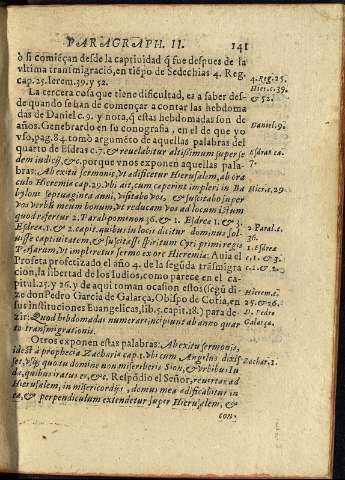 PARAGRAPH. II. 141
ò si comiẽçan desde la captiuidad q̃ fue despues de la
vltima transmigració, en tiẽpo de Sedechias 4. Reg.
cap. 25. Ierem. 39. y 52.
La tercera cosa que tiene dificultad, es a saber des-
de quando se han de començar a contar las hebdoma
das de Daniel c. 9. y nota, q̃ estas hebdomadas son de
años. Genebrardo en su conografia, en el de que yo
vso, pag. 84. tomò argumẽto de aquellas palabras del
quarto de Esdras c. 7. & reuelabitur altissimum super se
dem iudicij, &c. porque vnos exponen aquellas pala-
bras: Ab exitu sermonis, vt ædificetur Hierusalem, ab ora
culo Hieremiæ cap. 29. Vbi ait, cum ceperint impleri in Ba
bylone septuaginta anni, visitabo vos, & suscitabo super
vos verbũ meum bonum, vt reducam vos ad locum istum
quod refertur 2. Paralipomenon 36. & 1. Esdræ 1. &
Esdræ, 1. & 2. capit. quibus in locis dicitur dominus sol-
uisse captiuitatem, & suscitasse spiritum Cyri primi regis
Persarum, vt impleretur sermo ex ore Hieremiæ. Auia el
Profeta profetizado el año 4. de la segũda trãsmigra
cion, la libertad de los Iudios, como parece en el ca-
pitul. 25. y 26. y de aqui toman ocasion estos (segũ di-
ze don Pedro Garcia de Galarça, Obispo de Coria, en
sus instituciones Euangelicas, lib. 5. capit. 18.) para de
zir: Quod hebdomadas numerare incipiunt ab anno quar
to transmigrationis.
Otros exponen estas palabras: Ab exitu sermonis,
idest à prophecia Zachariæ cap. 1. Vbi cum Angelus dixis
set, vsquequo tu domine non misereberis Sion, & vrbibus Iu
da, quibus iratus es, &c. Respõdio el Señor, reuertar ad
Hierusalem, in misericordijs, domus mea ædificabitur in
ea, & perpendiculum extendetur super Hierusalem, &
con-
4. Reg. 25.
Hier. c. 39.
& 52.
Daniel. 9.
Esdræ ca.
7.
Hier. c. 29
2. Paral. c.
36.
1. Esdræ
c. 1. & 2.
Hierem. c.
25. & 26.
D. Pedro
Galarça.
Zachar. 1.